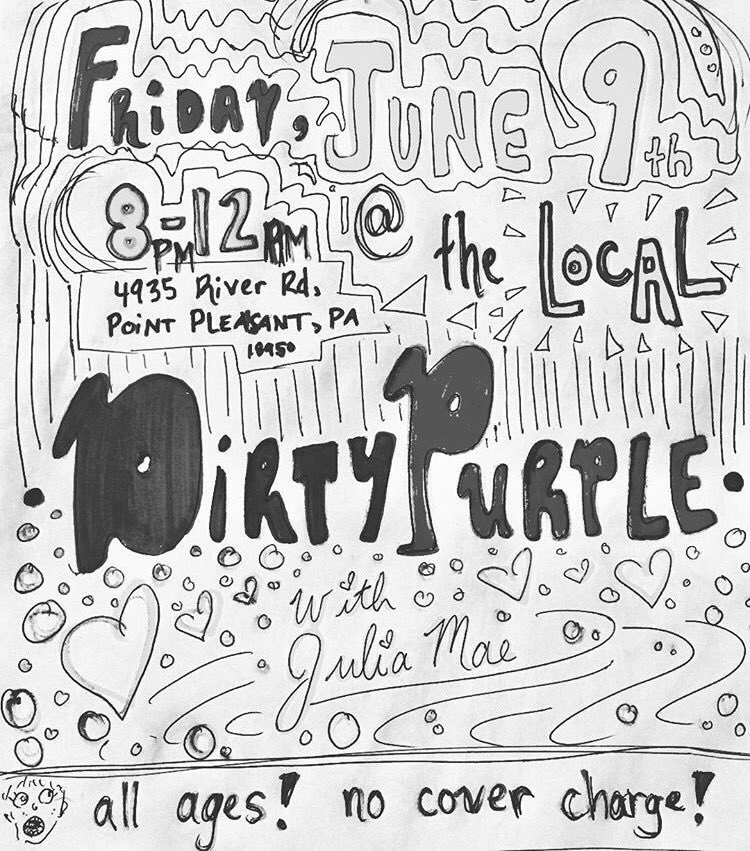 Friday, June 9th
8PM-12AM @ the Local
4935 River Rd.
Point Pleasant, PA
18950
Dirty Purple
with
Julia Mae
all ages! no cover charge!